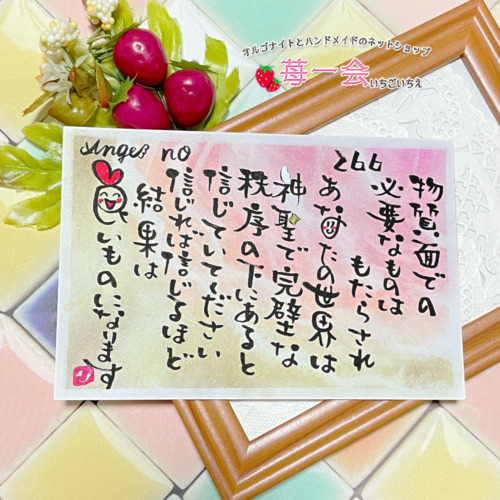 オルゴナイトとハンドメイドのネットショップ
苺一会いちごいちえ
Angel no 266
物質面での
必要なものは
もたらされ
あなたの世界は
神聖で完璧な
秩序の下にあると
信じていてください
信じれば信じるほど
結果は
いいものになります